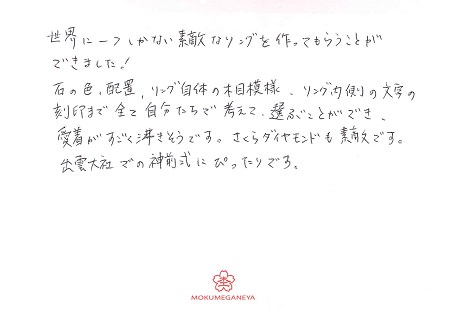 世界に一つしかない素敵なリングを作ってもらうことが
できました！
石の色、配置、リング自体の木目模様、リング内側の文字の
刻印まで全て自分たちで考えて、選ぶことができ、
愛着がすごく沸きそうです。さくらダイヤモンドも素敵です。
出雲大社での神前式にぴったりです。
MOKUMEGANEYA